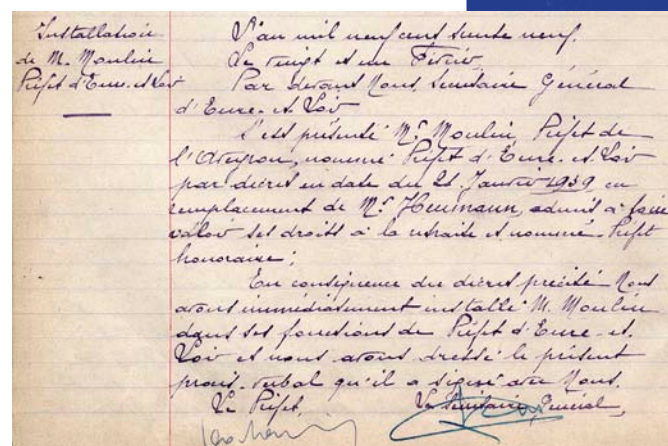 Installation
de M. Moulin
Préfet d'Eure-et-Loir
L'an mil neuf cent trente neuf.
Le vingt et un Février
Par devant Nous, Secrétaire Général
d'Eure-et-Loir
S'est présenté Mr Moulin, Préfet de
l'Aveyron, nommé Préfet d'Eure-et-Loir
par décret en date du 21 Janvier 1939 en
remplacement de Mr Heumann, admis à faire
valoir ses droits à la retraite et nommé Préfet
honoraire;
En conséquence du décret précité Nous
avons immédiatement installé M. Moulin
dans ses fonctions de Préfet d'Eure-et-
Loir et nous avons dressé le présent
procès-verbal qu'il a signé avec Nous.
Le Préfet, Le Secrétaire Général,